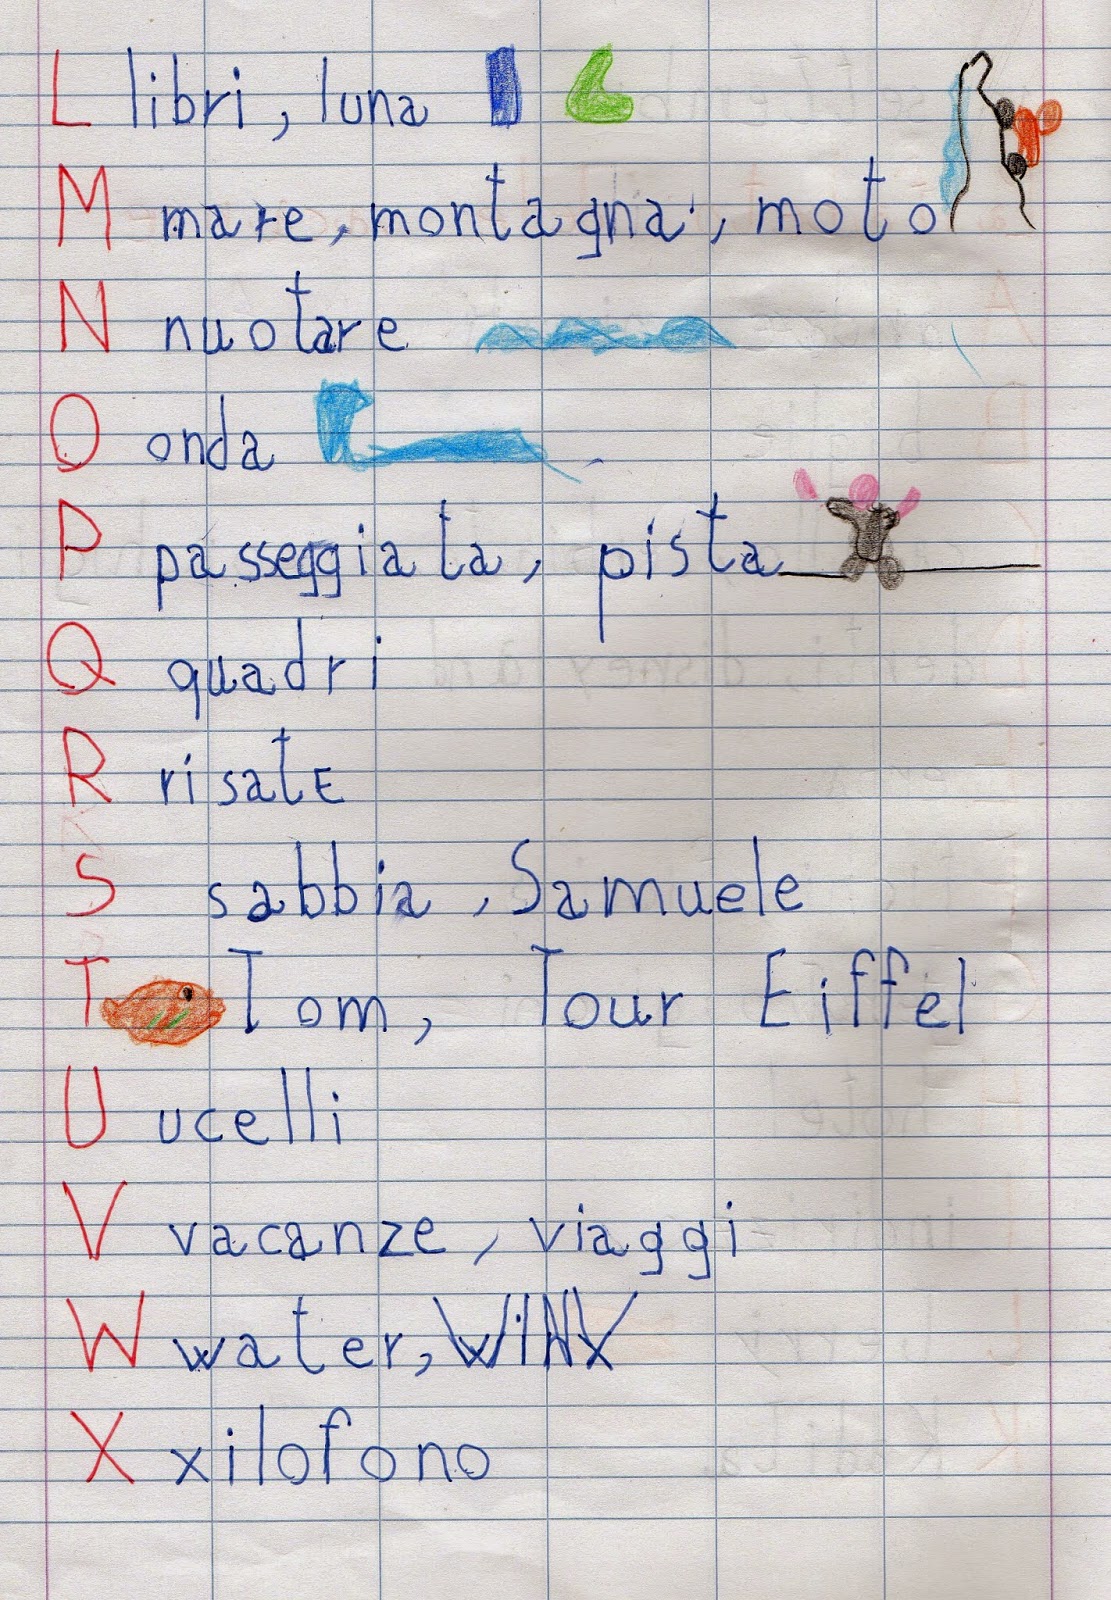 L libri, luna
M mare, montagna, moto
N nuotare
O onda
P passeggiata, pista
Q quadri
R risate
S sabbia, Samuele
T Tom, Tour Eiffel
U ucelli
V vacanze, viaggi
W water, WINX
X xilofono